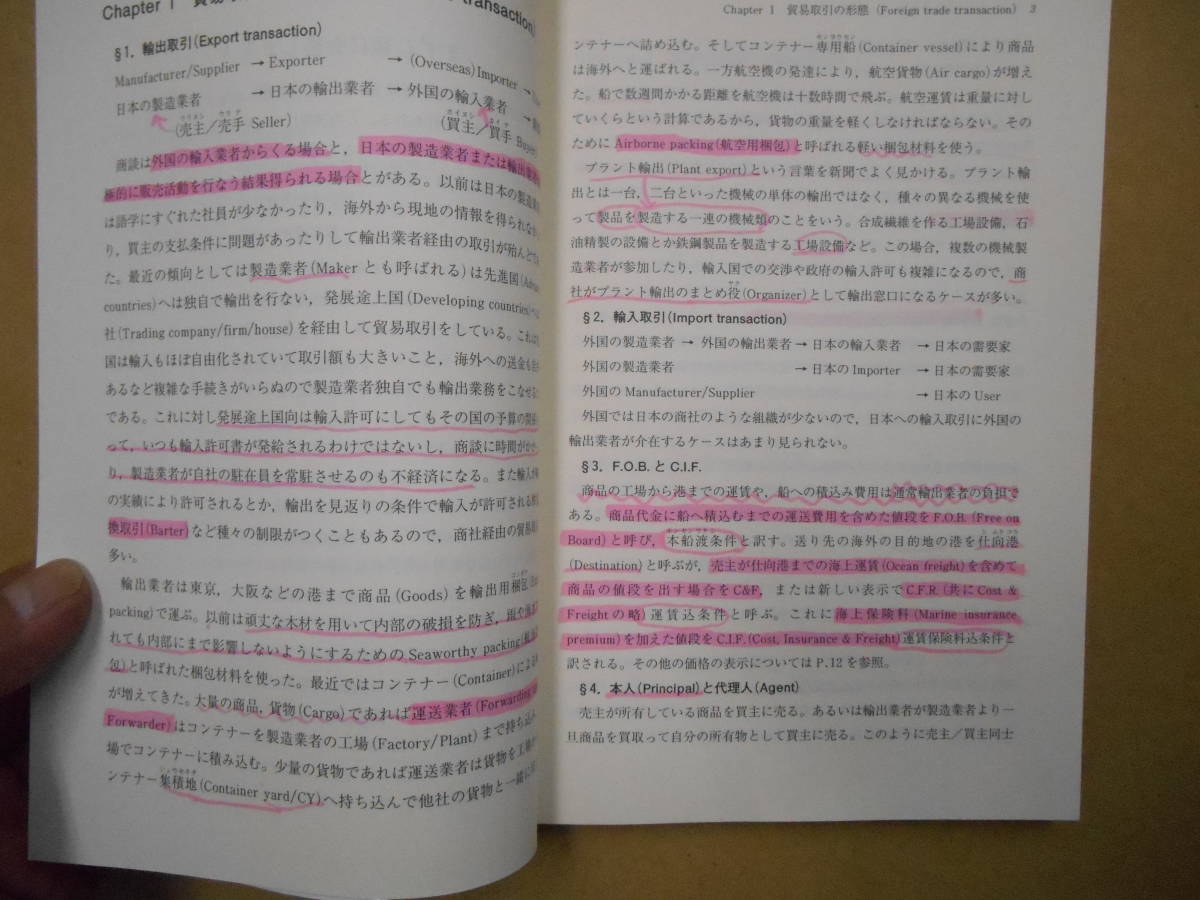 Chapter 1 貿易
transaction)
§1．輸出取引(Export transaction)
Manufacturer/Supplier → Exporter → (Overseas) Importer →
日本の製造業者 → 日本の輸出業者 → 外国の輸入業者 →
(売主／売手 Seller) (買主／買手
商談は外国の輸入業者からくる場合と，日本の製造業者または輸出業者
極的に販売活動を行なう結果得られる場合とがある。以前は日本の製造業
は語学にすぐれた社員が少なかったり，海外から現地の情報を得られな
り，買主の支払条件に問題があったりして輸出業者経由の取引が殆んど
た。最近の傾向としては製造業者(Maker とも呼ばれる)は先進国
countries)へは独自で輸出を行ない，発展途上国(Developing countries)
社(Trading company/firm/house)を経由して貿易取引をしている。これは
国は輸入もほぼ自由化されていて取引額も大きいこと，海外への送金も
あるなど複雑な手続きがいらぬので製造業者独自でも輸出業務をこなせる
である。これに対し発展途上国向は輸入許可にしてもその国の予算の関係
って，いつも輸入許可書が発給されるわけではないし，商談に時間がか
り，製造業者が自社の駐在員を常駐させるのも不経済になる。また輸入
の実績により許可されるとか，輸出を見返りの条件で輸入が許可される
換取引(Barter)など種々の制限がつくこともあるので，商社経由の貿易
多い。
輸出業者は東京，大阪などの港まで商品(Goods)を輸出用梱包
packing)で運ぶ。以前は頑丈な木材を用いて内部の破損を防ぎ，雨や海
れても内部にまで影響しないようにするための Seaworthy packing
包)と呼ばれた梱包材料を使った。最近ではコンテナー(Container)による
が増えてきた。大量の商品，貨物(Cargo)であれば運送業者(Forwarding
Forwarder)はコンテナーを製造業者の工場(Factory/Plant)まで持ち込み
場でコンテナーに積み込む。少量の貨物であれば運送業者は貨物を工場
ンテナー集積地(Container yard/CY)へ持ち込んで他社の貨物と一緒に
Chapter 1 貿易取引の形態 (Foreign trade transaction) 3
ンテナーへ詰め込む。そしてコンテナー専用船(Container vessel)により商品
は海外へと運ばれる。一方航空機の発達により，航空貨物(Air cargo)が増え
た。船で数週間かかる距離を航空機は十数時間で飛ぶ。航空運賃は重量に対し
ていくらという計算であるから，貨物の重量を軽くしなければならない。その
ために Airborne packing(航空用梱包)と呼ばれる軽い梱包材料を使う。
プラント輸出(Plant export)という言葉を新聞でよく見かける。プラント輸
出とは一台，二台といった機械の単体の輸出ではなく，種々の異なる機械を使
って製品を製造する一連の機械類のことをいう。合成繊維を作る工場設備，石
油精製の設備とか鉄鋼製品を製造する工場設備など。この場合，複数の機械製
造業者が参加したり，輸入国での交渉や政府の輸入許可も複雑になるので，商
社がプラント輸出のまとめ役(Organizer)として輸出窓口になるケースが多い。
§2．輸入取引(Import transaction)
外国の製造業者 → 外国の輸出業者 → 日本の輸入業者 → 日本の需要家
外国の製造業者 → 日本の Importer → 日本の需要家
外国の Manufacturer/Supplier → 日本の User
外国では日本の商社のような組織が少ないので，日本への輸入取引に外国の
輸出業者が介在するケースはあまり見られない。
§3．F.O.B. と C.I.F.
商品の工場から港までの運賃や，船への積込み費用は通常輸出業者の負担で
ある。商品代金に船へ積込むまでの運送費用を含めた値段を F.O.B. (Free on
Board)と呼び，本船渡条件と訳す。送り先の海外の目的地の港を仕向港
(Destination)と呼ぶが，売主が仕向港までの海上運賃(Ocean freight)を含めて
商品の値段を出す場合を C&F，または新しい表示で C.F.R. (共に Cost &
Freight の略)運賃込条件と呼ぶ。これに海上保険料(Marine insurance
premium)を加えた値段を C.I.F. (Cost, Insurance & Freight)運賃保険料込条件と
訳される。その他の価格の表示については P.12 を参照。
§4．本人(Principal)と代理人(Agent)
売主が所有している商品を買主に売る。あるいは輸出業者が製造業者より一
旦商品を買取って自分の所有物として買主に売る。このように売主／買主同士